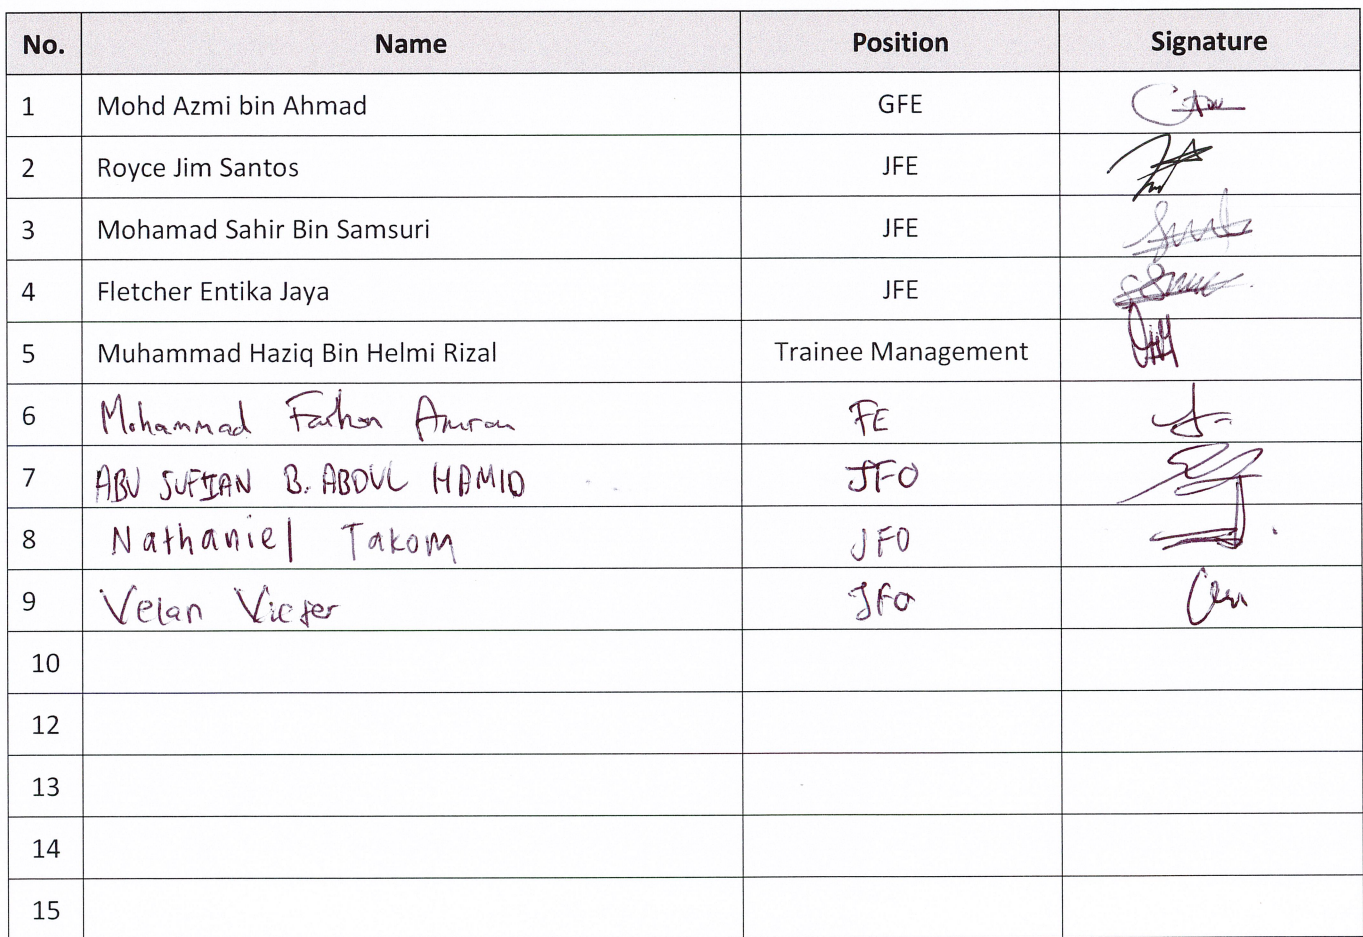 No. Name Position Signature
1 Mohd Azmi bin Ahmad GFE
2 Royce Jim Santos JFE
3 Mohamad Sahir Bin Samsuri JFE
4 Fletcher Entika Jaya JFE
5 Muhammad Haziq Bin Helmi Rizal Trainee Management
6 Mohammad Farhan Amran FE
7 ABU SUFIAN B. ABDUL HAMID JFO
8 Nathaniel Takom JFO
9 Velan Victer JFO
10
12
13
14
15